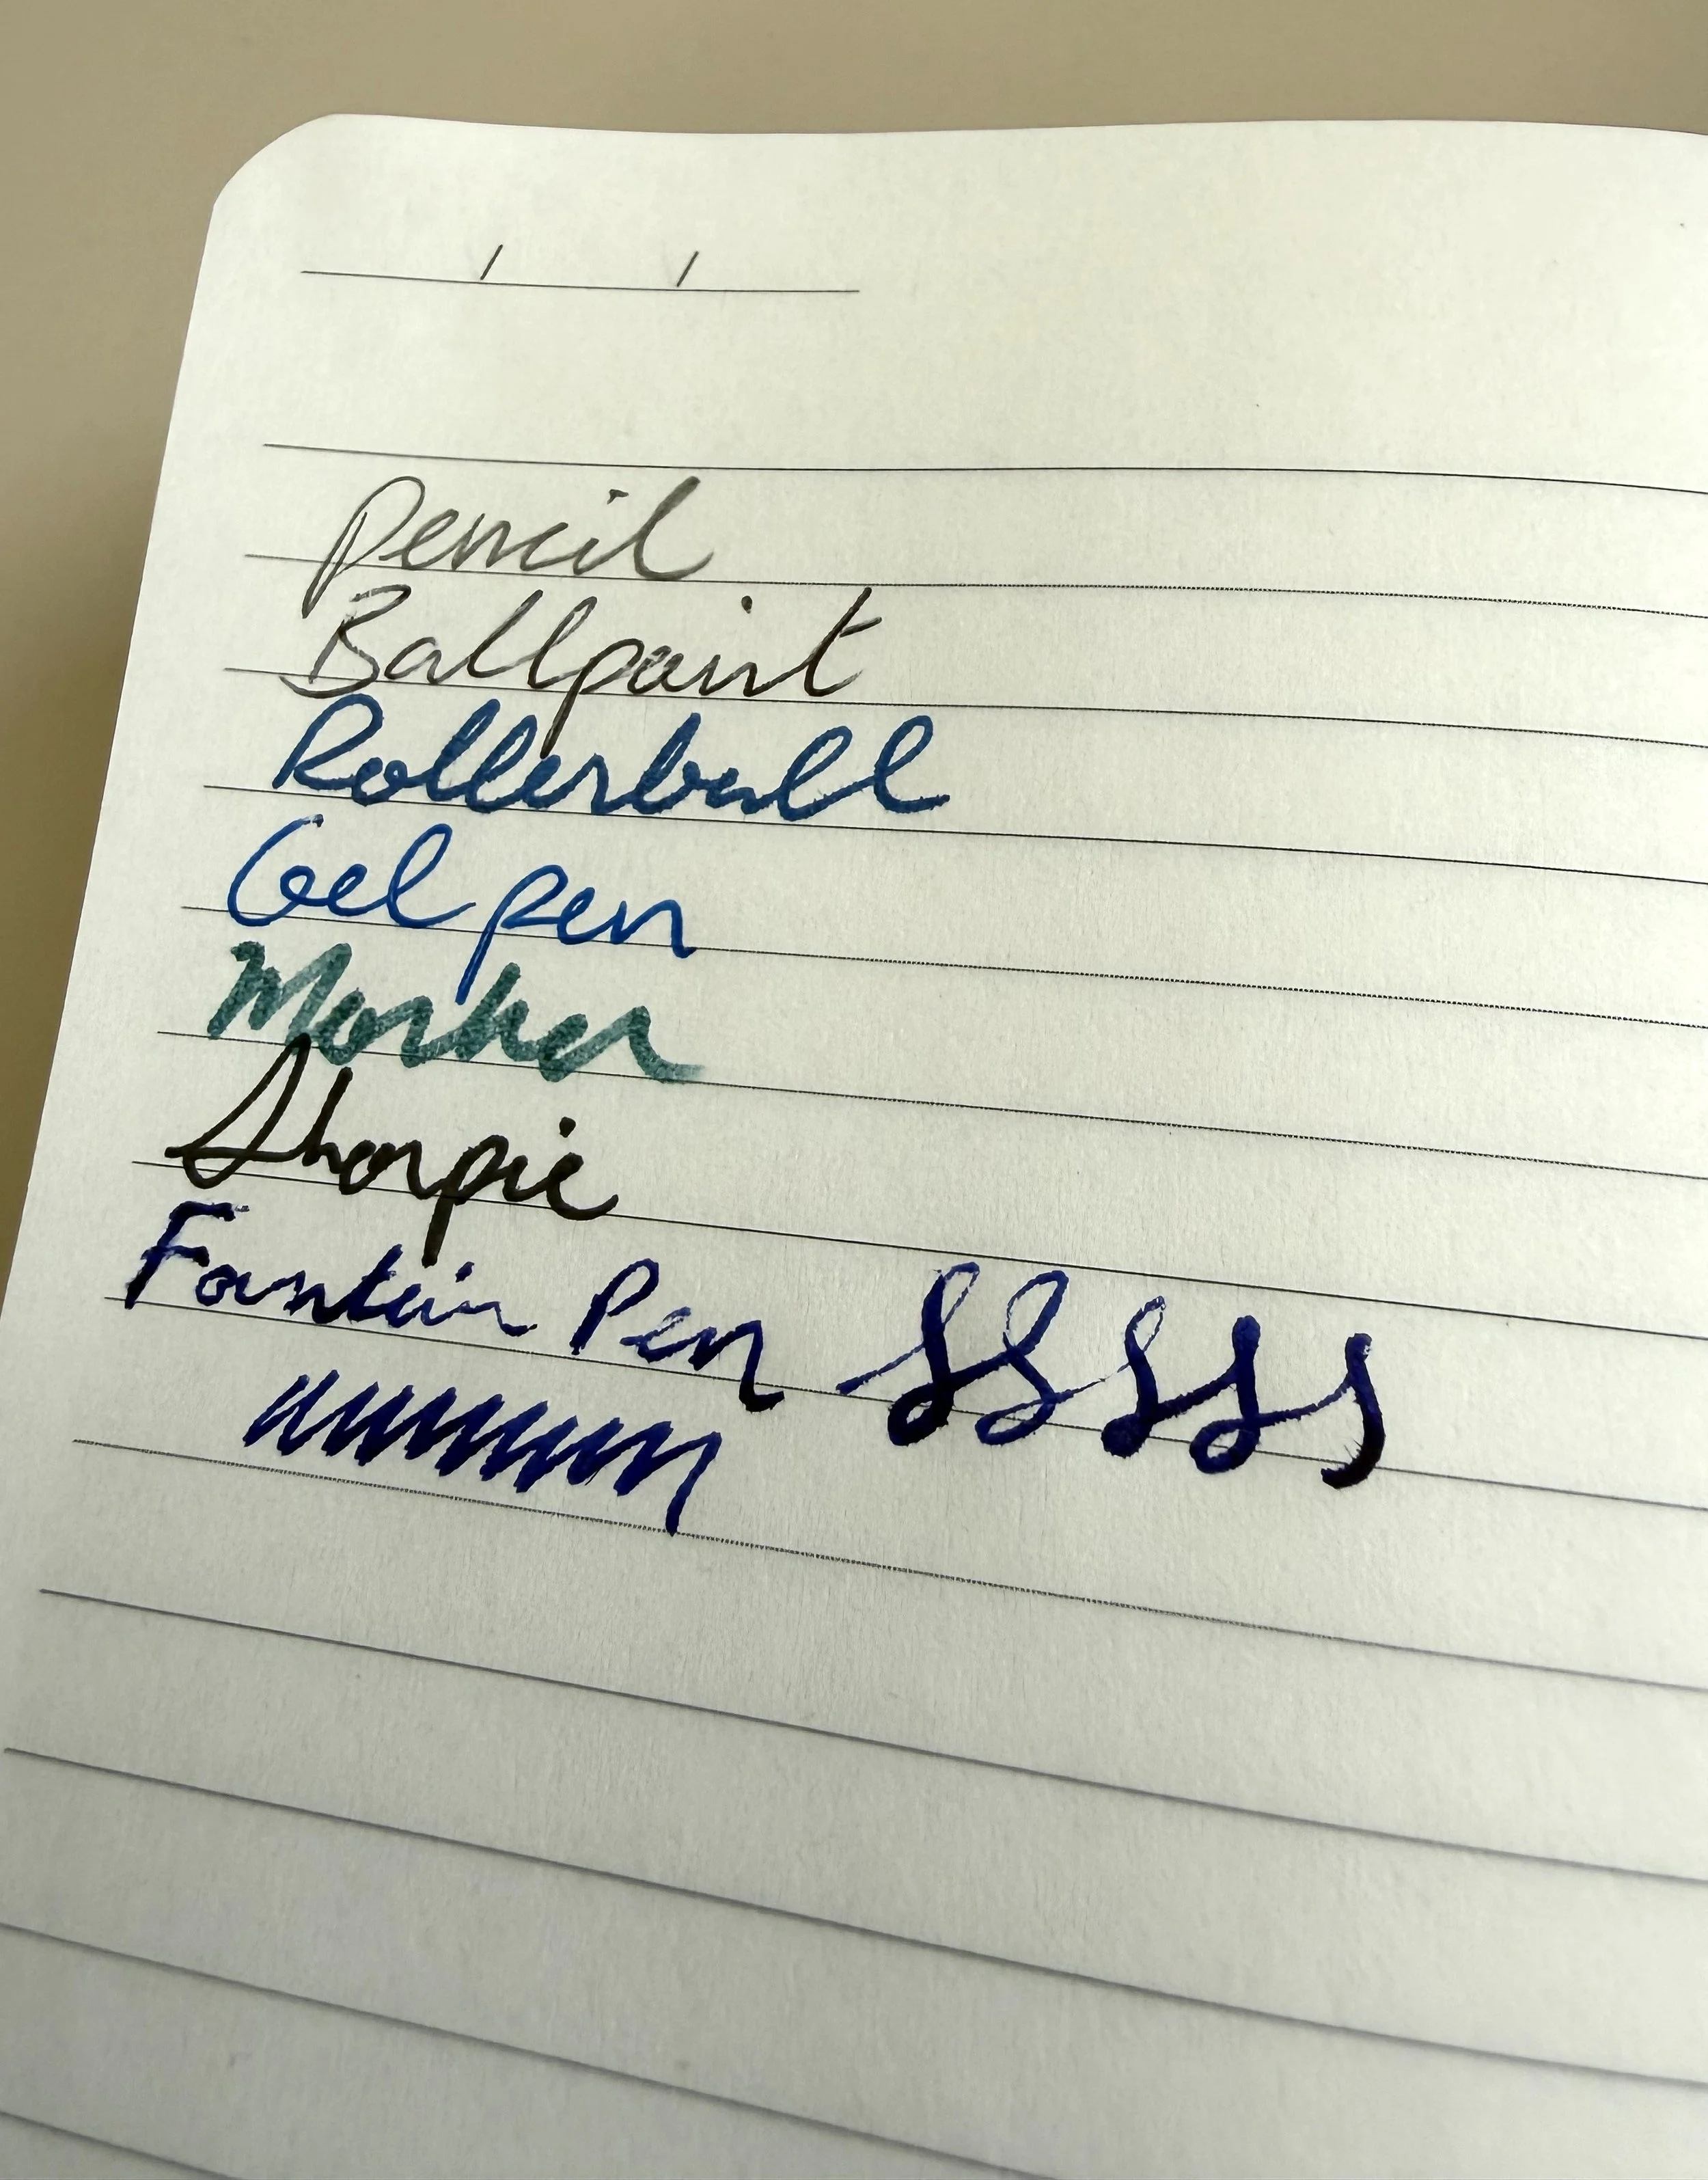 / /
Pencil
Ballpoint
Rollerball
Gel pen
Marker
Sharpie
Fountain Pen SSSSS